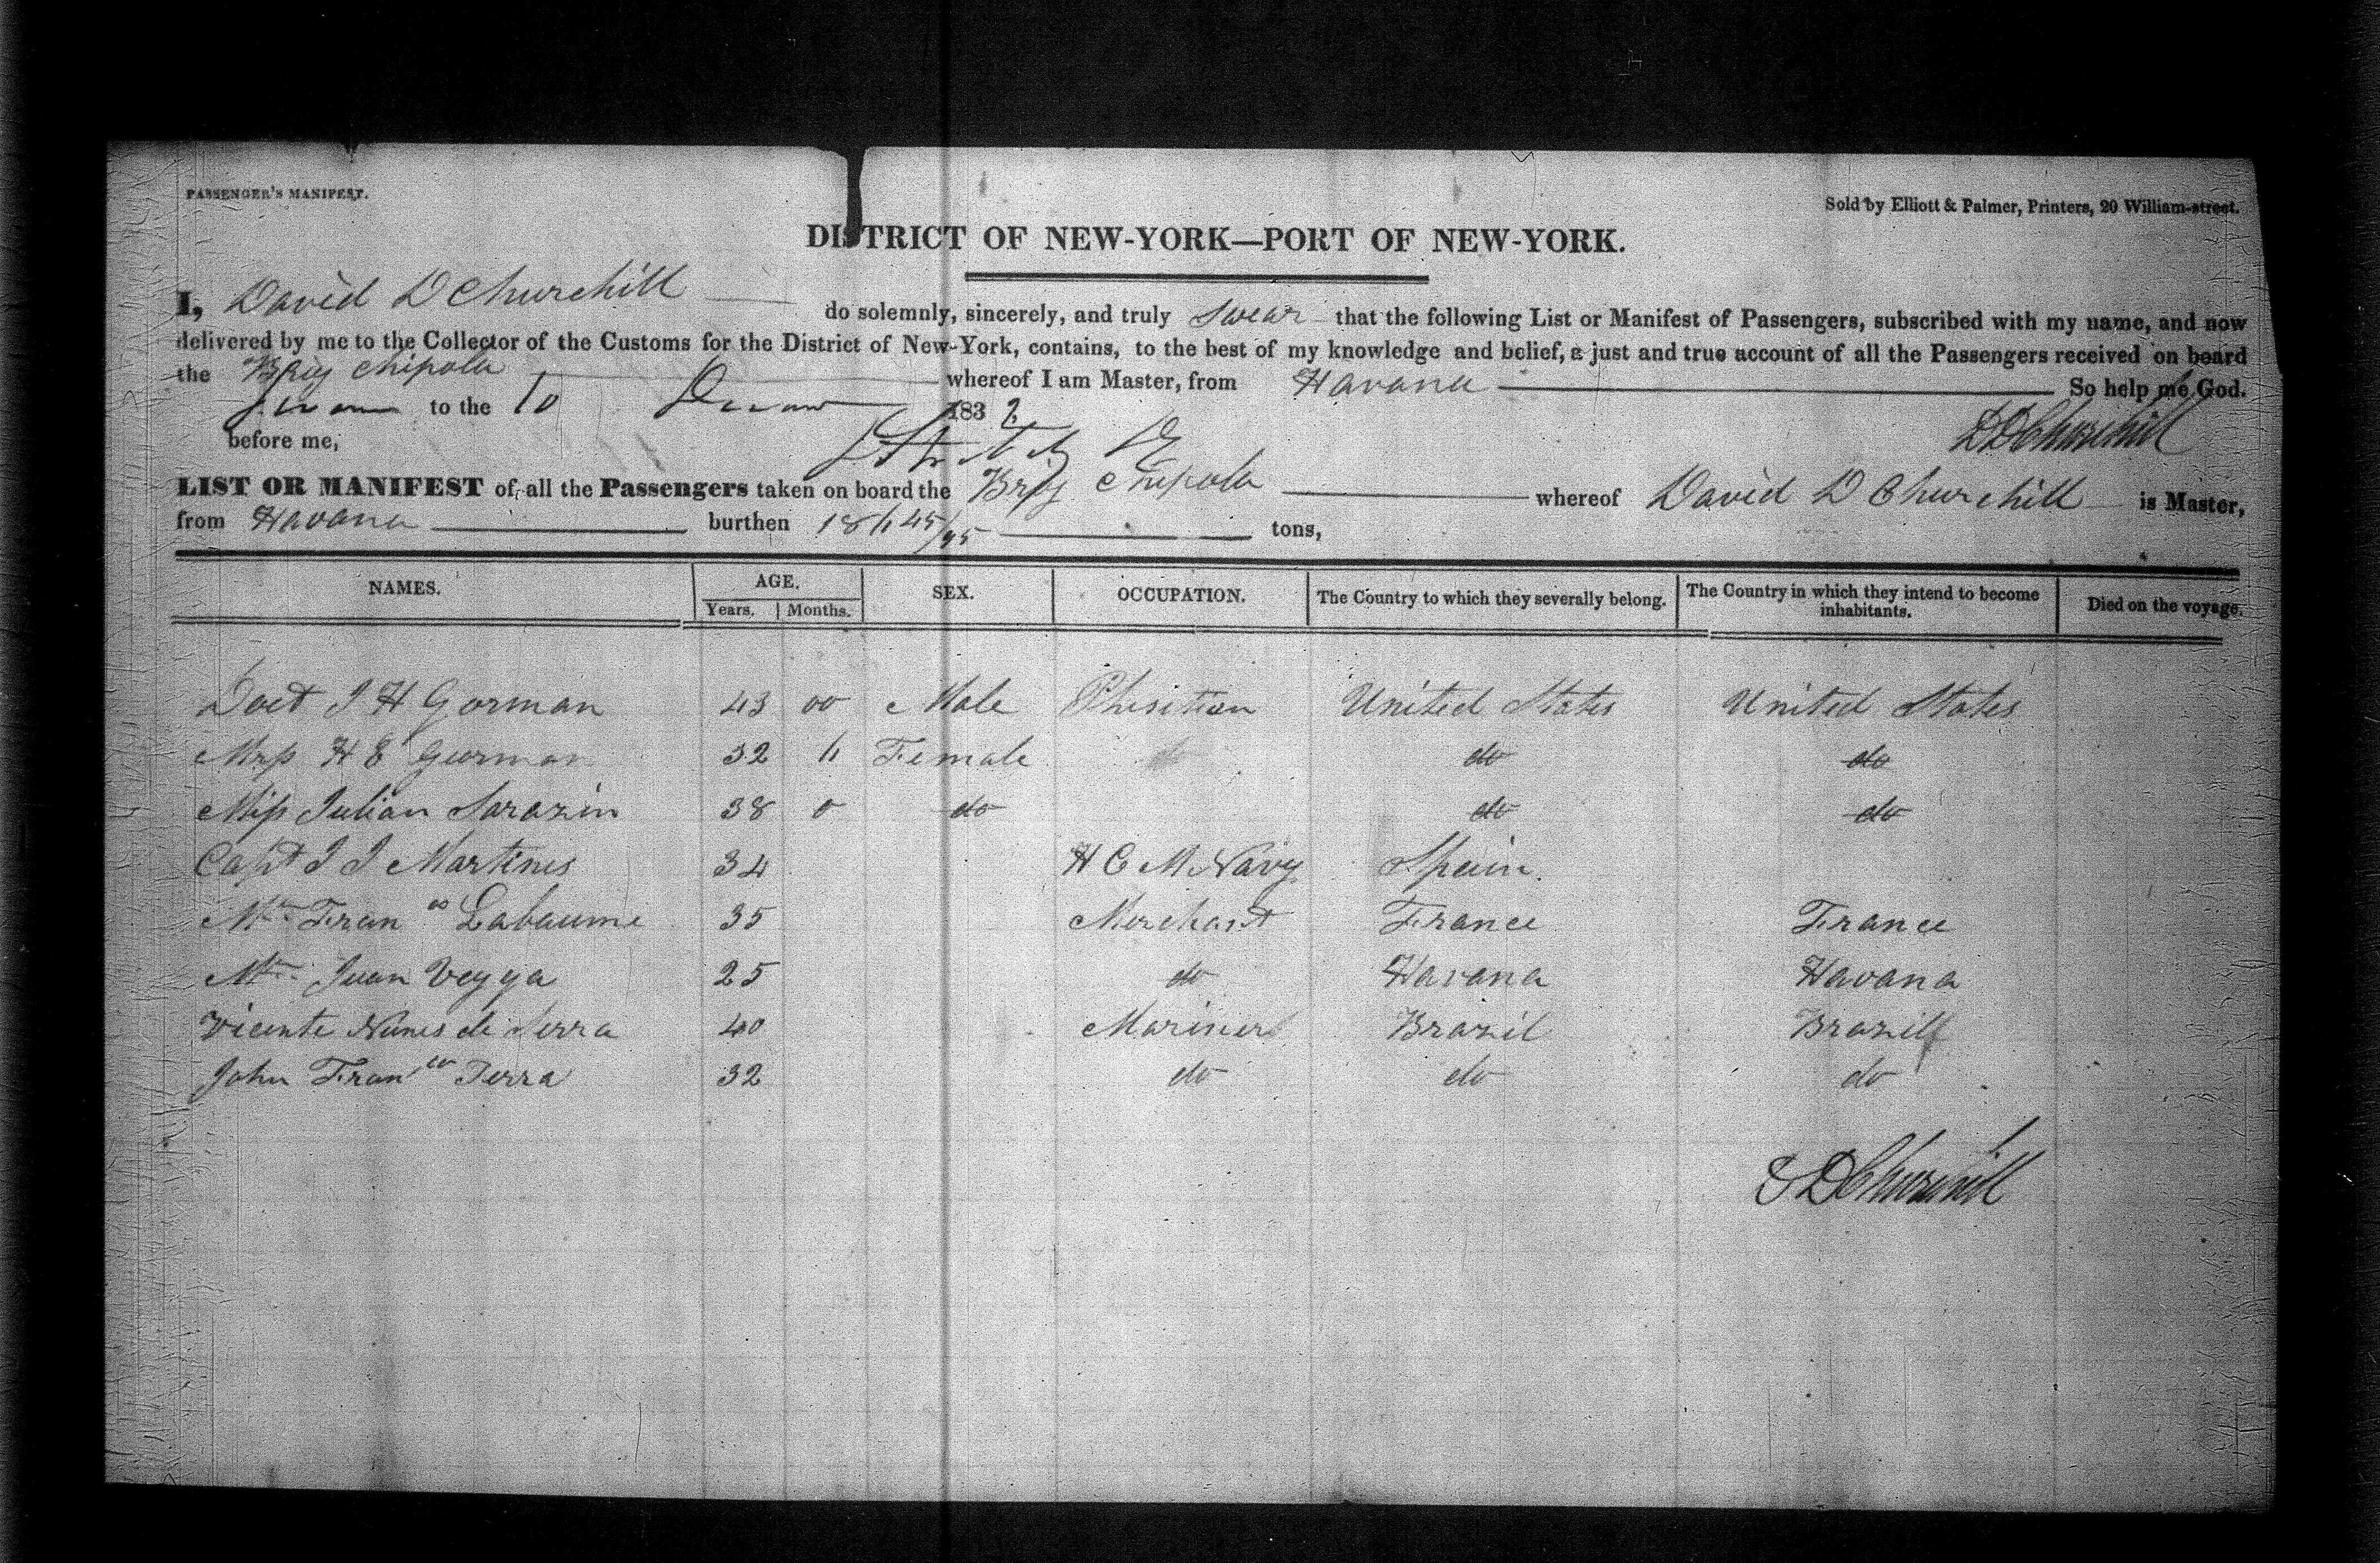 PASSENGER'S MANIFEST.
Sold by Elliott & Palmer, Printers, 20 William-street.
DISTRICT OF NEW-YORK—PORT OF NEW-YORK.
I, David D Churchill do solemnly, sincerely, and truly swear that the following List or Manifest of Passengers, subscribed with my name, and now
delivered by me to the Collector of the Customs for the District of New-York, contains, to the best of my knowledge and belief, a just and true account of all the Passengers received on board
the Brig Chipola whereof I am Master, from Havana So help me God.
to the 10 183
before me, DDChurchill
LIST OR MANIFEST of all the Passengers taken on board the Brig Chipola whereof David D Churchill is Master,
from Havana burthen 45/95 tons,
NAMES. AGE. SEX. OCCUPATION. The Country to which they severally belong. The Country in which they intend to become inhabitants. Died on the voyage.
Years. Months.
Doct J H Gorman 43 00 Male Phisitian United States United States
Mrs H E Gorman 32 11 Female do do
Miss Julian Sarazin 38 0 do do do
Capt J J Martines 34 H C M Navy Spain.
Mr Fran co Labaume 35 Merchant France France
Mr Juan Vegga 25 do Havana Havana
Vicente Nunes de Serra 40 Mariner Brazil Brazil
John Fran co Terra 32 do do do
DDChurchill